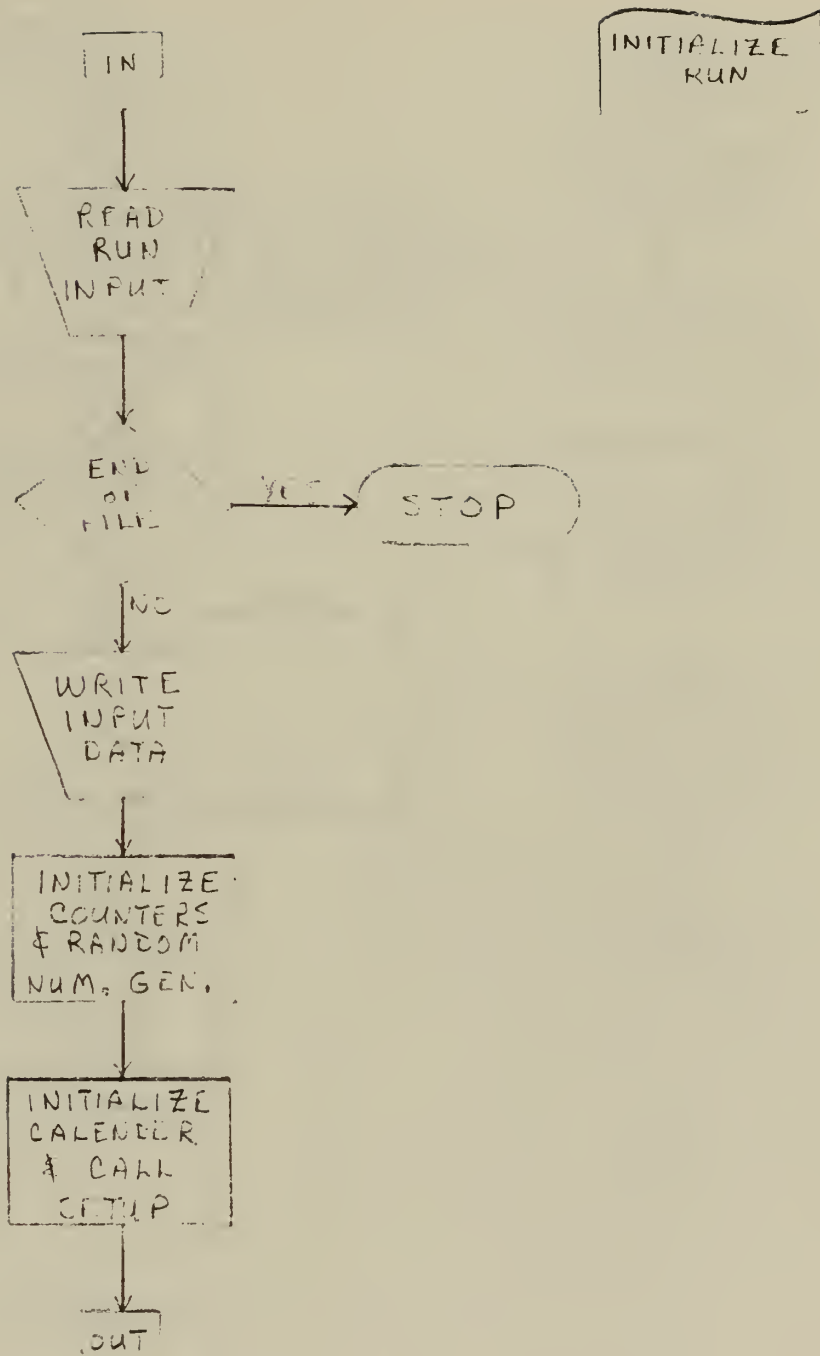 IN
INITIALIZE
RUN
READ
RUN
INPUT
END
OF
FILE
YES
STOP
NO
WRITE
INPUT
DATA
INITIALIZE
COUNTERS
& RANDOM
NUM. GEN.
INITIALIZE
CALENDER
& CALL
SETUP
OUT